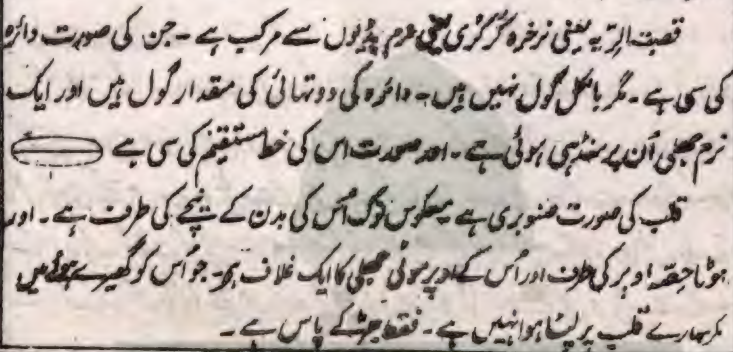 قصبۃ الریہ یعنی نرخرہ کُرکُری یعنی نرم ہڈیوں سے مرکب ہے ۔ جن کی صورت دائرہ
کی سی ہے ۔ مگر بالکل گول نہیں ہیں ۔ دائرہ کی دو تہائی کی مقدار گول ہیں اور ایک
نرم جھلی اُن پر منڈہی ہوئی ہے ۔ اور صورت اس کی خط مستقیم کی سی ہے
قلب کی صورت صنوبری ہے معکوس نوک اُس کی بدن کے نیچے کی طرف ہے ۔ اور
موٹا حصّہ اوپر کی طرف اور اُس کے اوپر موٹی جھلی کا ایک غلاف ہے ۔ جو اُس کو گھیرے ہوئے ہیں
مگر سارے قلب پر لپٹا ہوا نہیں ہے ۔ فقط جڑ کے پاس ہے ۔